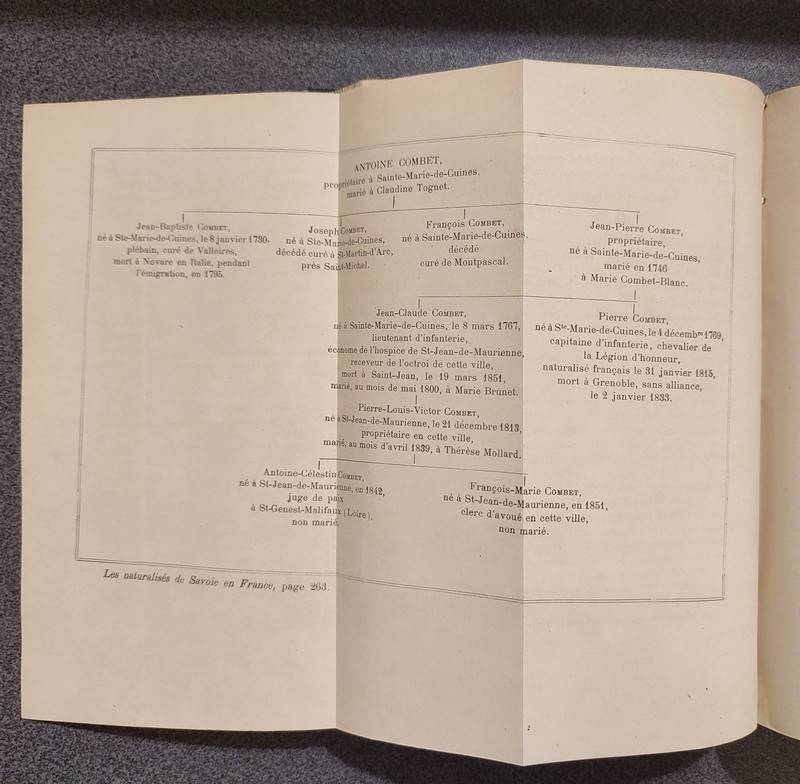 ANTOINE COMBET,
propriétaire à Sainte-Marie-de-Cuines.
marié à Claudine Tognet.
Jean-Baptiste COMBET,
né à Ste-Marie-de-Cuines, le 8 janvier 1730.
plébain, curé de Valloires,
mort à Novare en Italie, pendant
l'émigration, en 1795.
Joseph COMBET,
né à Ste-Marie-de-Cuines,
décédé curé à St-Martin-d'Arc,
près Saint-Michel.
François COMBET,
né à Sainte-Marie-de-Cuines.
décédé
curé de Montpascal.
Jean-Pierre COMBET,
propriétaire,
né à Sainte-Marie-de-Cuines,
marié en 1746
à Marie Combet-Blanc.
Jean-Claude COMBET,
né à Sainte-Marie-de-Cuines, le 8 mars 1767,
lieutenant d'infanterie,
économe de l'hospice de St-Jean-de-Maurienne,
receveur de l'octroi de cette ville,
mort à Saint-Jean, le 19 mars 1851,
marié, au mois de mai 1800, à Marie Brunet.
Pierre COMBET,
né à Ste-Marie-de-Cuines, le 4 décembre 1769,
capitaine d'infanterie, chevalier de
la Légion d'honneur,
naturalisé français le 31 janvier 1815,
mort à Grenoble, sans alliance,
le 2 janvier 1833.
Pierre-Louis-Victor COMBET,
né à St-Jean-de-Maurienne, le 21 décembre 1813,
propriétaire en cette ville,
marié, au mois d'avril 1839, à Thérèse Mollard.
Antoine-Célestin COMBET,
né à St-Jean-de-Maurienne, en 1842,
juge de paix
à St-Genest-Malifaux (Loire),
non marié.
François-Marie COMBET,
né à St-Jean-de-Maurienne, en 1851,
clerc d'avoué en cette ville,
non marié.
Les naturalisés de Savoie en France, page 263.